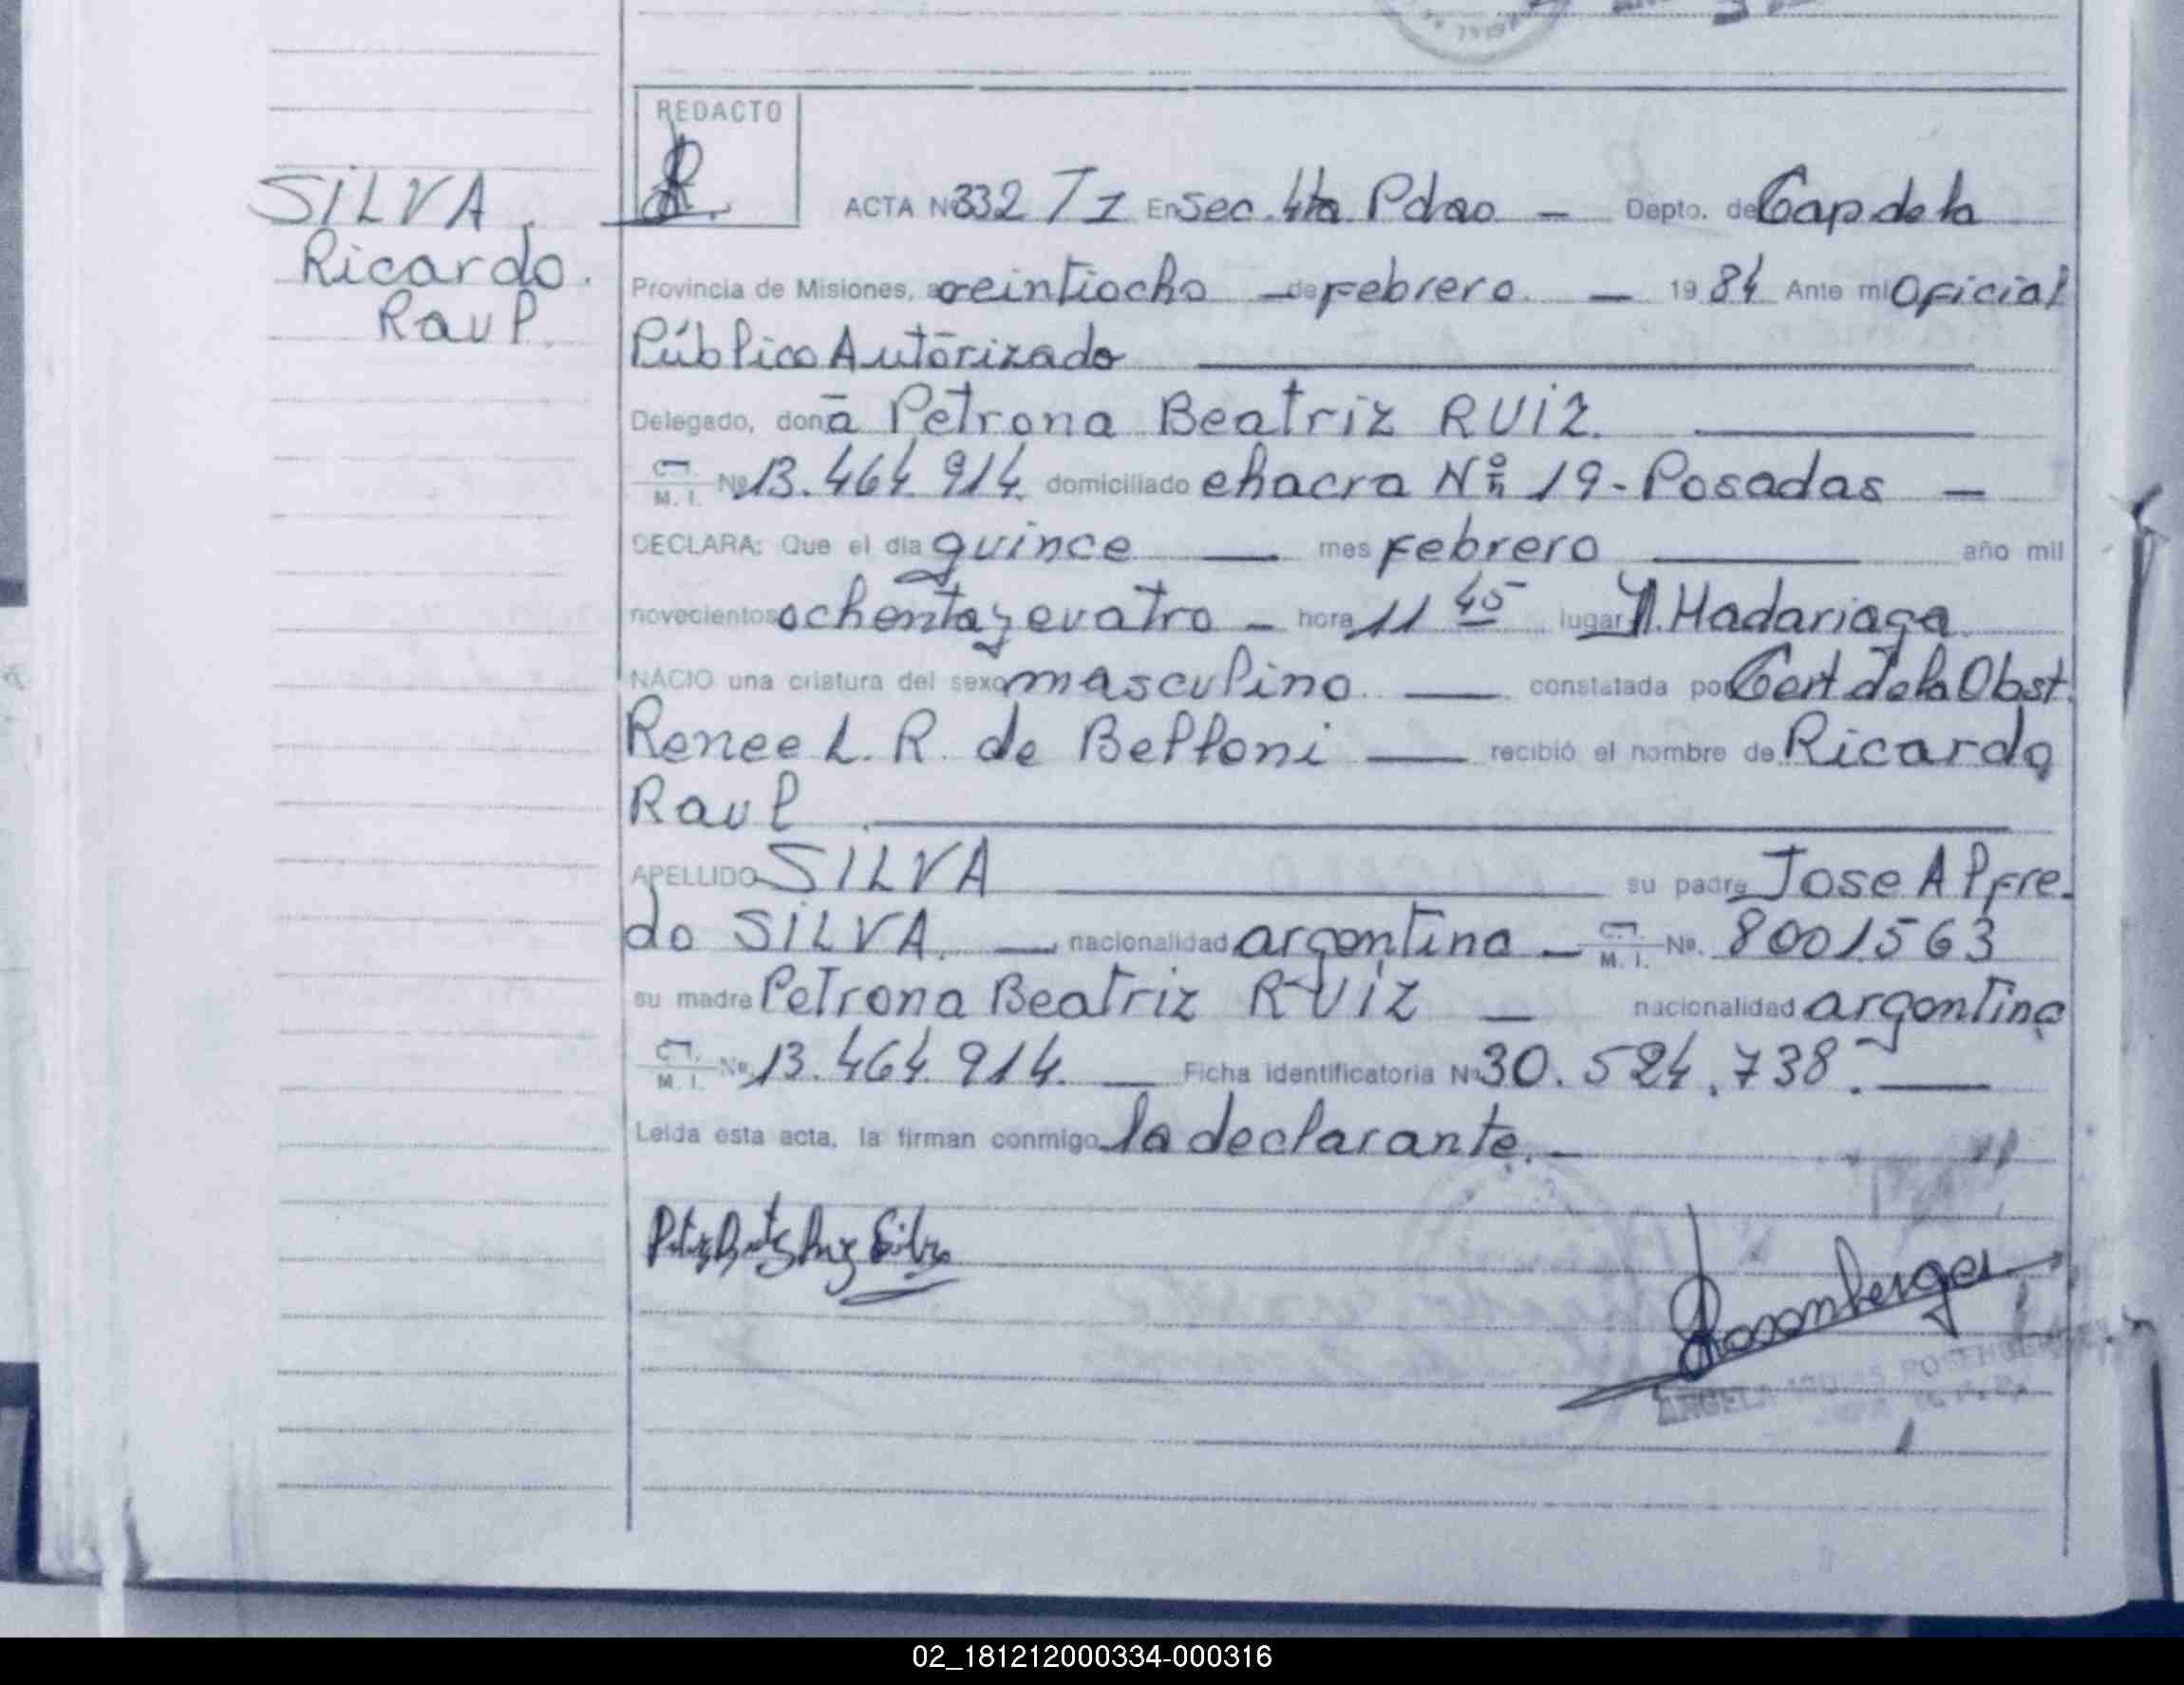 REDACTO
SILVA
Ricardo.
Raul.
ACTA Nº 332 T 1 En Sec. 4ta Pdas — Depto. de Cap de la
Provincia de Misiones, a veintiocho — de Febrero. — 19 84 Ante mi Oficial
Público Autorizado
Delegado, don a Petrona Beatriz RUIZ.
C. I. M. I. Nº 13.464.914. domiciliado chacra Nº 19 - Posadas —
DECLARA: Que el dia quince — mes Febrero — año mil
novecientos ochenta y cuatro — hora 11 45 lugar H. Madariaga.
NACIO una criatura del sexo masculino. — constatada por Cert de la Obst.
Renee L. R. de Belloni — recibió el nombre de Ricardo
Raul.
APELLIDO SILVA — su padre Jose Alfre-
do SILVA. — nacionalidad argentina — C. I. M. I. No. 8001563
su madre Petrona Beatriz RUIZ — nacionalidad argentina
C. I. M. I. No. 13.464.914. — Ficha identificatoria Nº 30.524.738. —
Leida esta acta, la firman conmigo la declarante. —
Ruiz Silva
Rosemberger
ANGELA
02_181212000334-000316